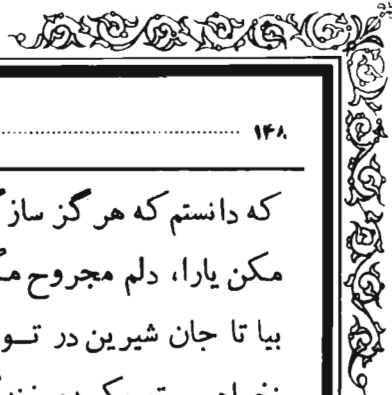 ۱۴۸ ........................................
که دانستم که هر گز ساز
مکن یارا، دلم مجروح
بیا تا جان شیرین در تــو